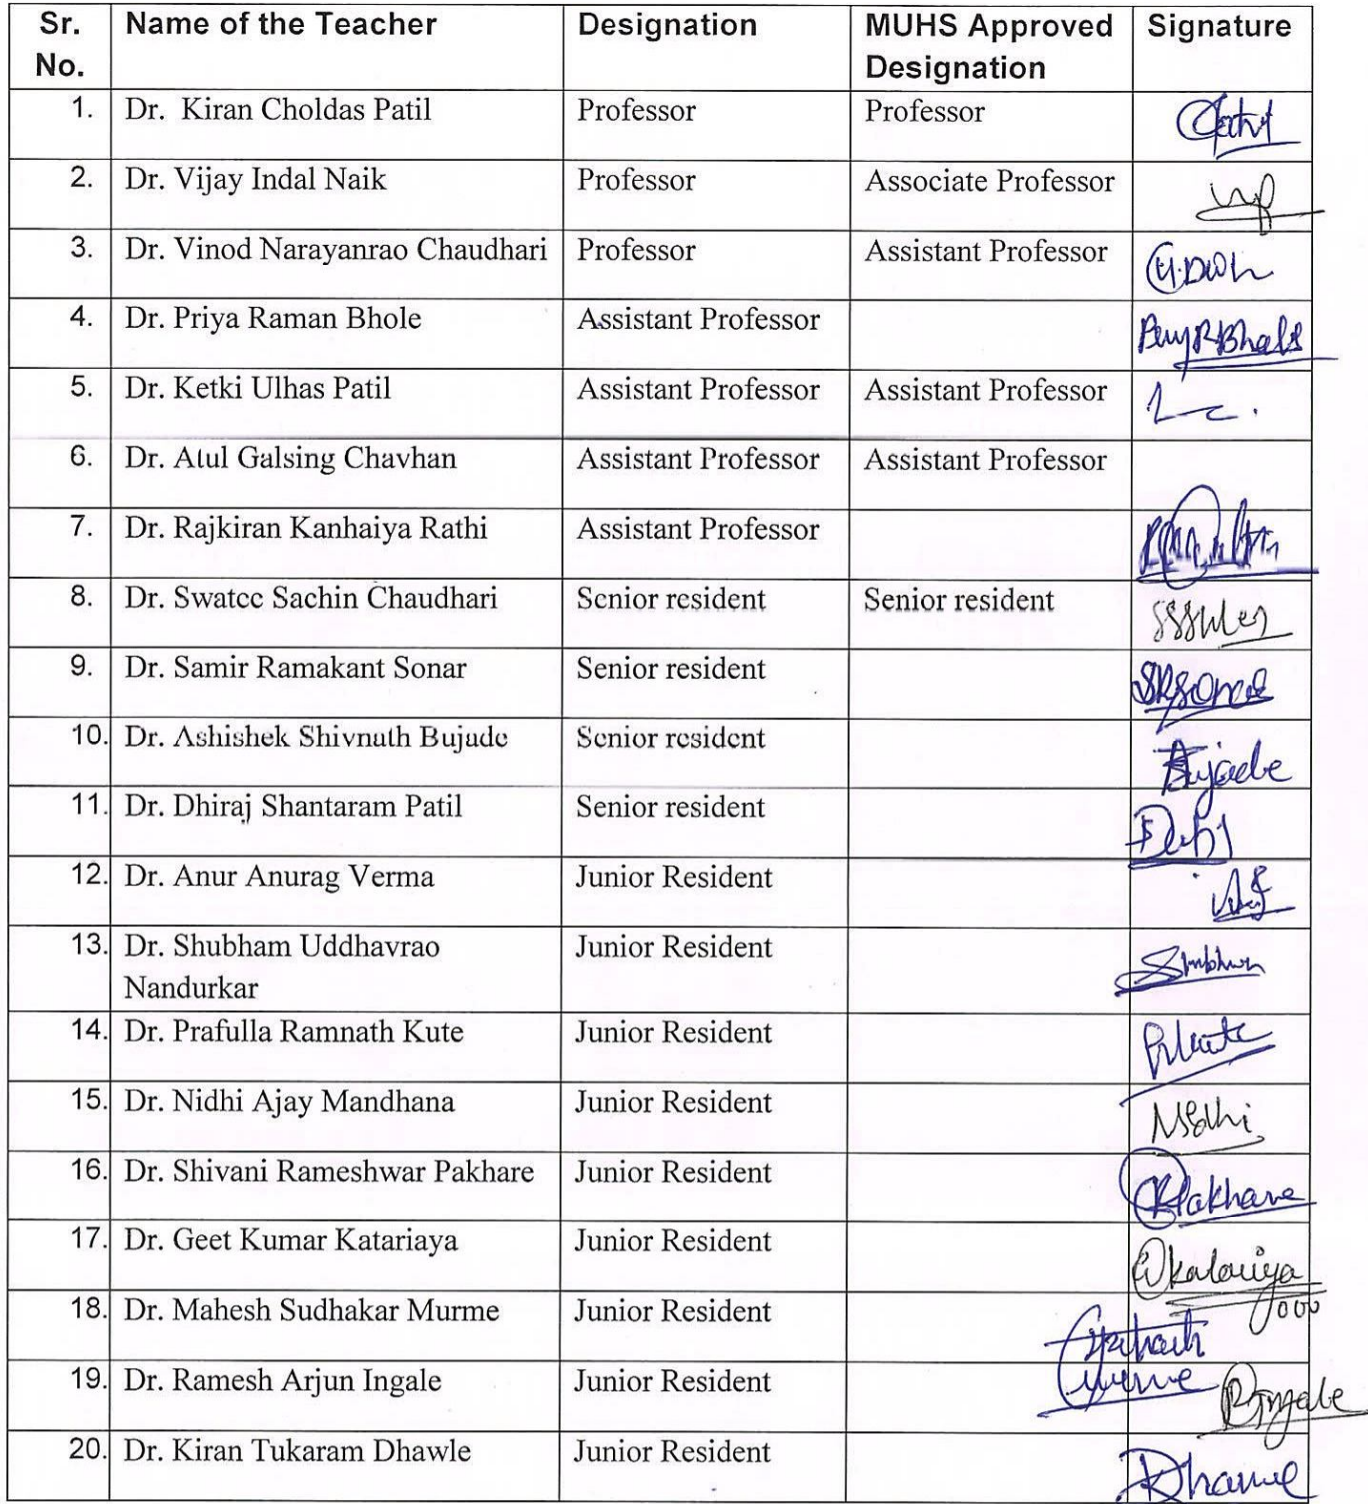 Sr. No. Name of the Teacher Designation MUHS Approved Designation Signature
1. Dr. Kiran Choldas Patil Professor Professor
2. Dr. Vijay Indal Naik Professor Associate Professor
3. Dr. Vinod Narayanrao Chaudhari Professor Assistant Professor
4. Dr. Priya Raman Bhole Assistant Professor
5. Dr. Ketki Ulhas Patil Assistant Professor Assistant Professor
6. Dr. Atul Galsing Chavhan Assistant Professor Assistant Professor
7. Dr. Rajkiran Kanhaiya Rathi Assistant Professor
8. Dr. Swatee Sachin Chaudhari Senior resident Senior resident
9. Dr. Samir Ramakant Sonar Senior resident SRSonar
10. Dr. Ashishek Shivnath Bujade Senior resident
11. Dr. Dhiraj Shantaram Patil Senior resident
12. Dr. Anur Anurag Verma Junior Resident
13. Dr. Shubham Uddhavrao
Nandurkar Junior Resident
14. Dr. Prafulla Ramnath Kute Junior Resident
15. Dr. Nidhi Ajay Mandhana Junior Resident Nidhi
16. Dr. Shivani Rameshwar Pakhare Junior Resident
17. Dr. Geet Kumar Katariaya Junior Resident
18. Dr. Mahesh Sudhakar Murme Junior Resident
19. Dr. Ramesh Arjun Ingale Junior Resident
20. Dr. Kiran Tukaram Dhawle Junior Resident